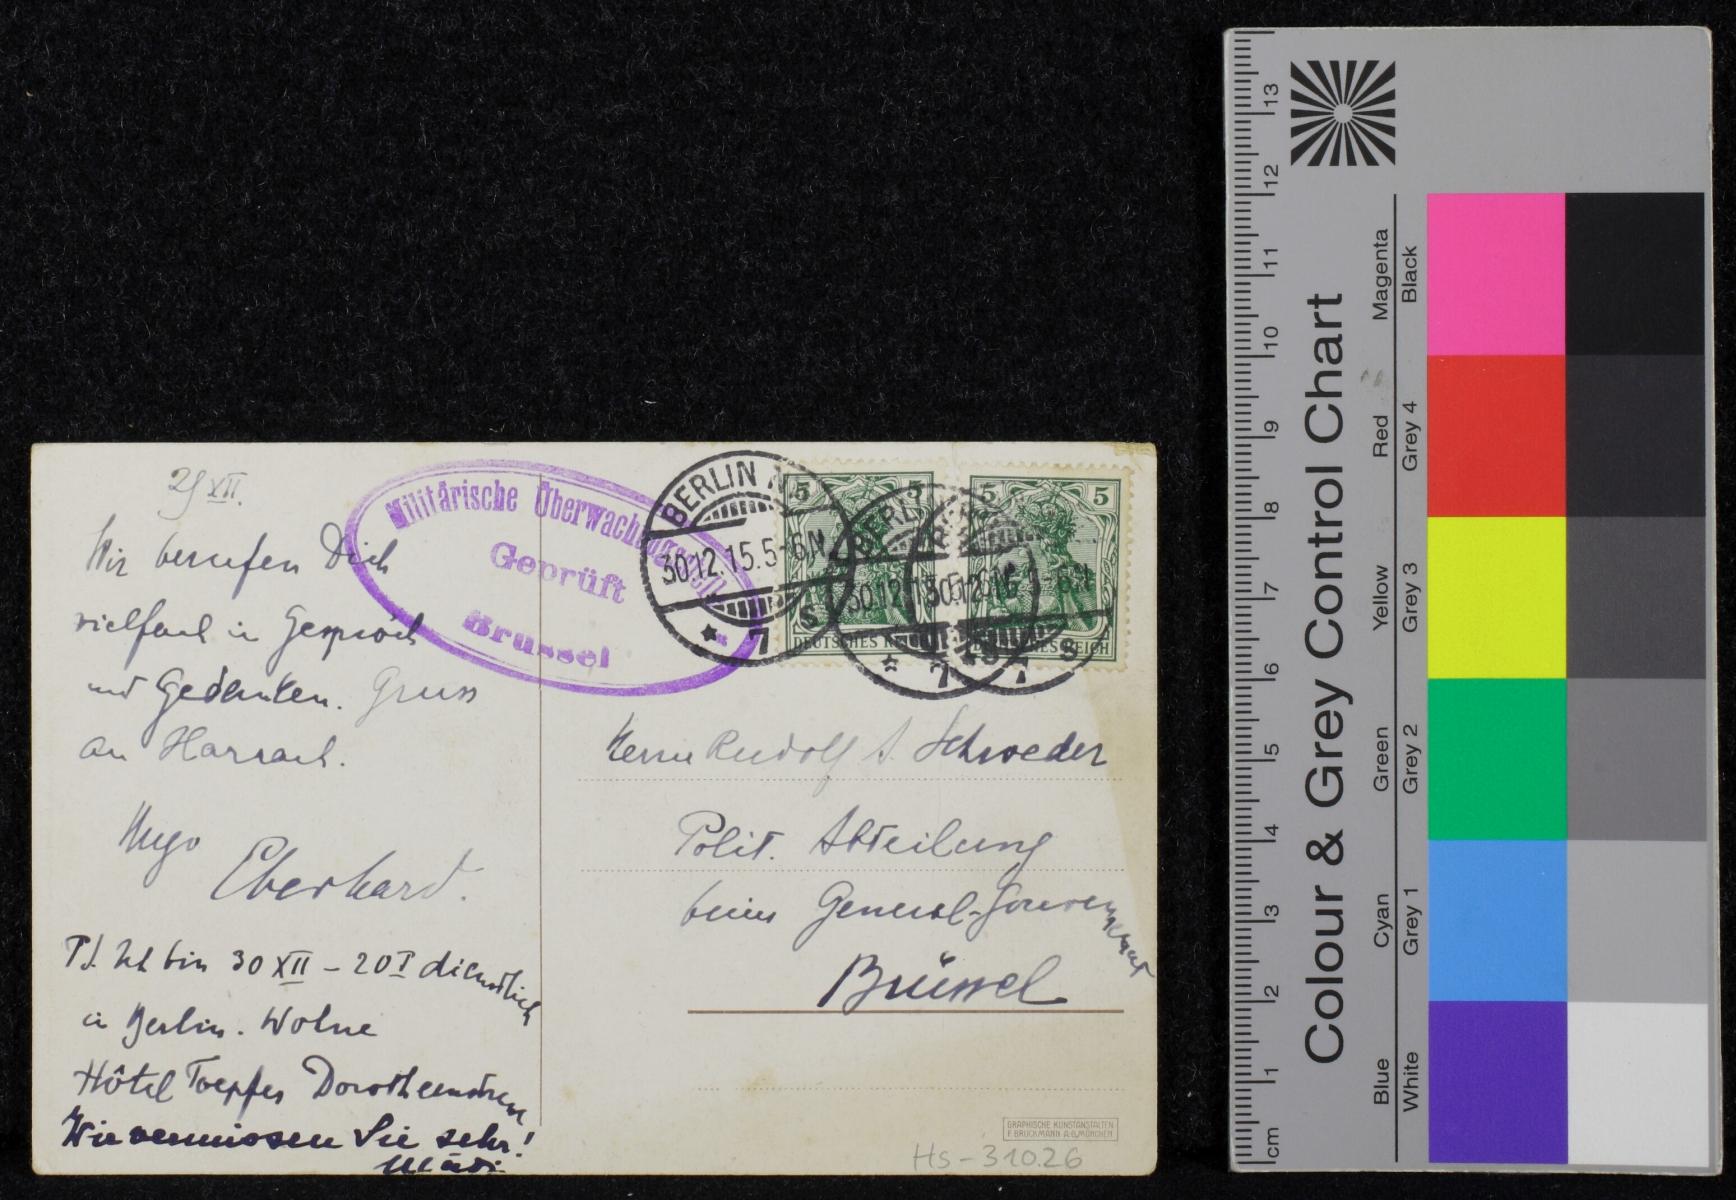 29 XII.
Wir berufen Dich
vielfach in Gespräch
und Gedenken. Gruss
an Harrach.
Hugo
Eberhard.
P.S. Ich bin 30 XII – 20 I dienstlich
in Berlin. Wohne
Hôtel Toepfer Dorotheenstrasse
Wir vermissen Sie sehr!
Mädi
Militärische Überwachungsstelle
Geprüft
Brüssel
BERLIN N.
30.12.15.5-6N.
* 7 S
5 5
DEUTSCHES REICH
5 5
DEUTSCHES REICH
BERLIN
30.12.15.5-6N.
* 7 S
BERLIN
30.12.15.5-6N.
* 7 S
Herrn Rudolf A. Schroeder
Polit. Abteilung
beim General-Gouvernement
Brüssel
GRAPHISCHE KUNSTANSTALTEN
F. BRUCKMANN A.G. MÜNCHEN
Hs-31026
Colour & Grey Control Chart
Blue Cyan Green Yellow Red Magenta
White Grey 1 Grey 2 Grey 3 Grey 4 Black
cm 1 2 3 4 5 6 7 8 9 10 11 12 13